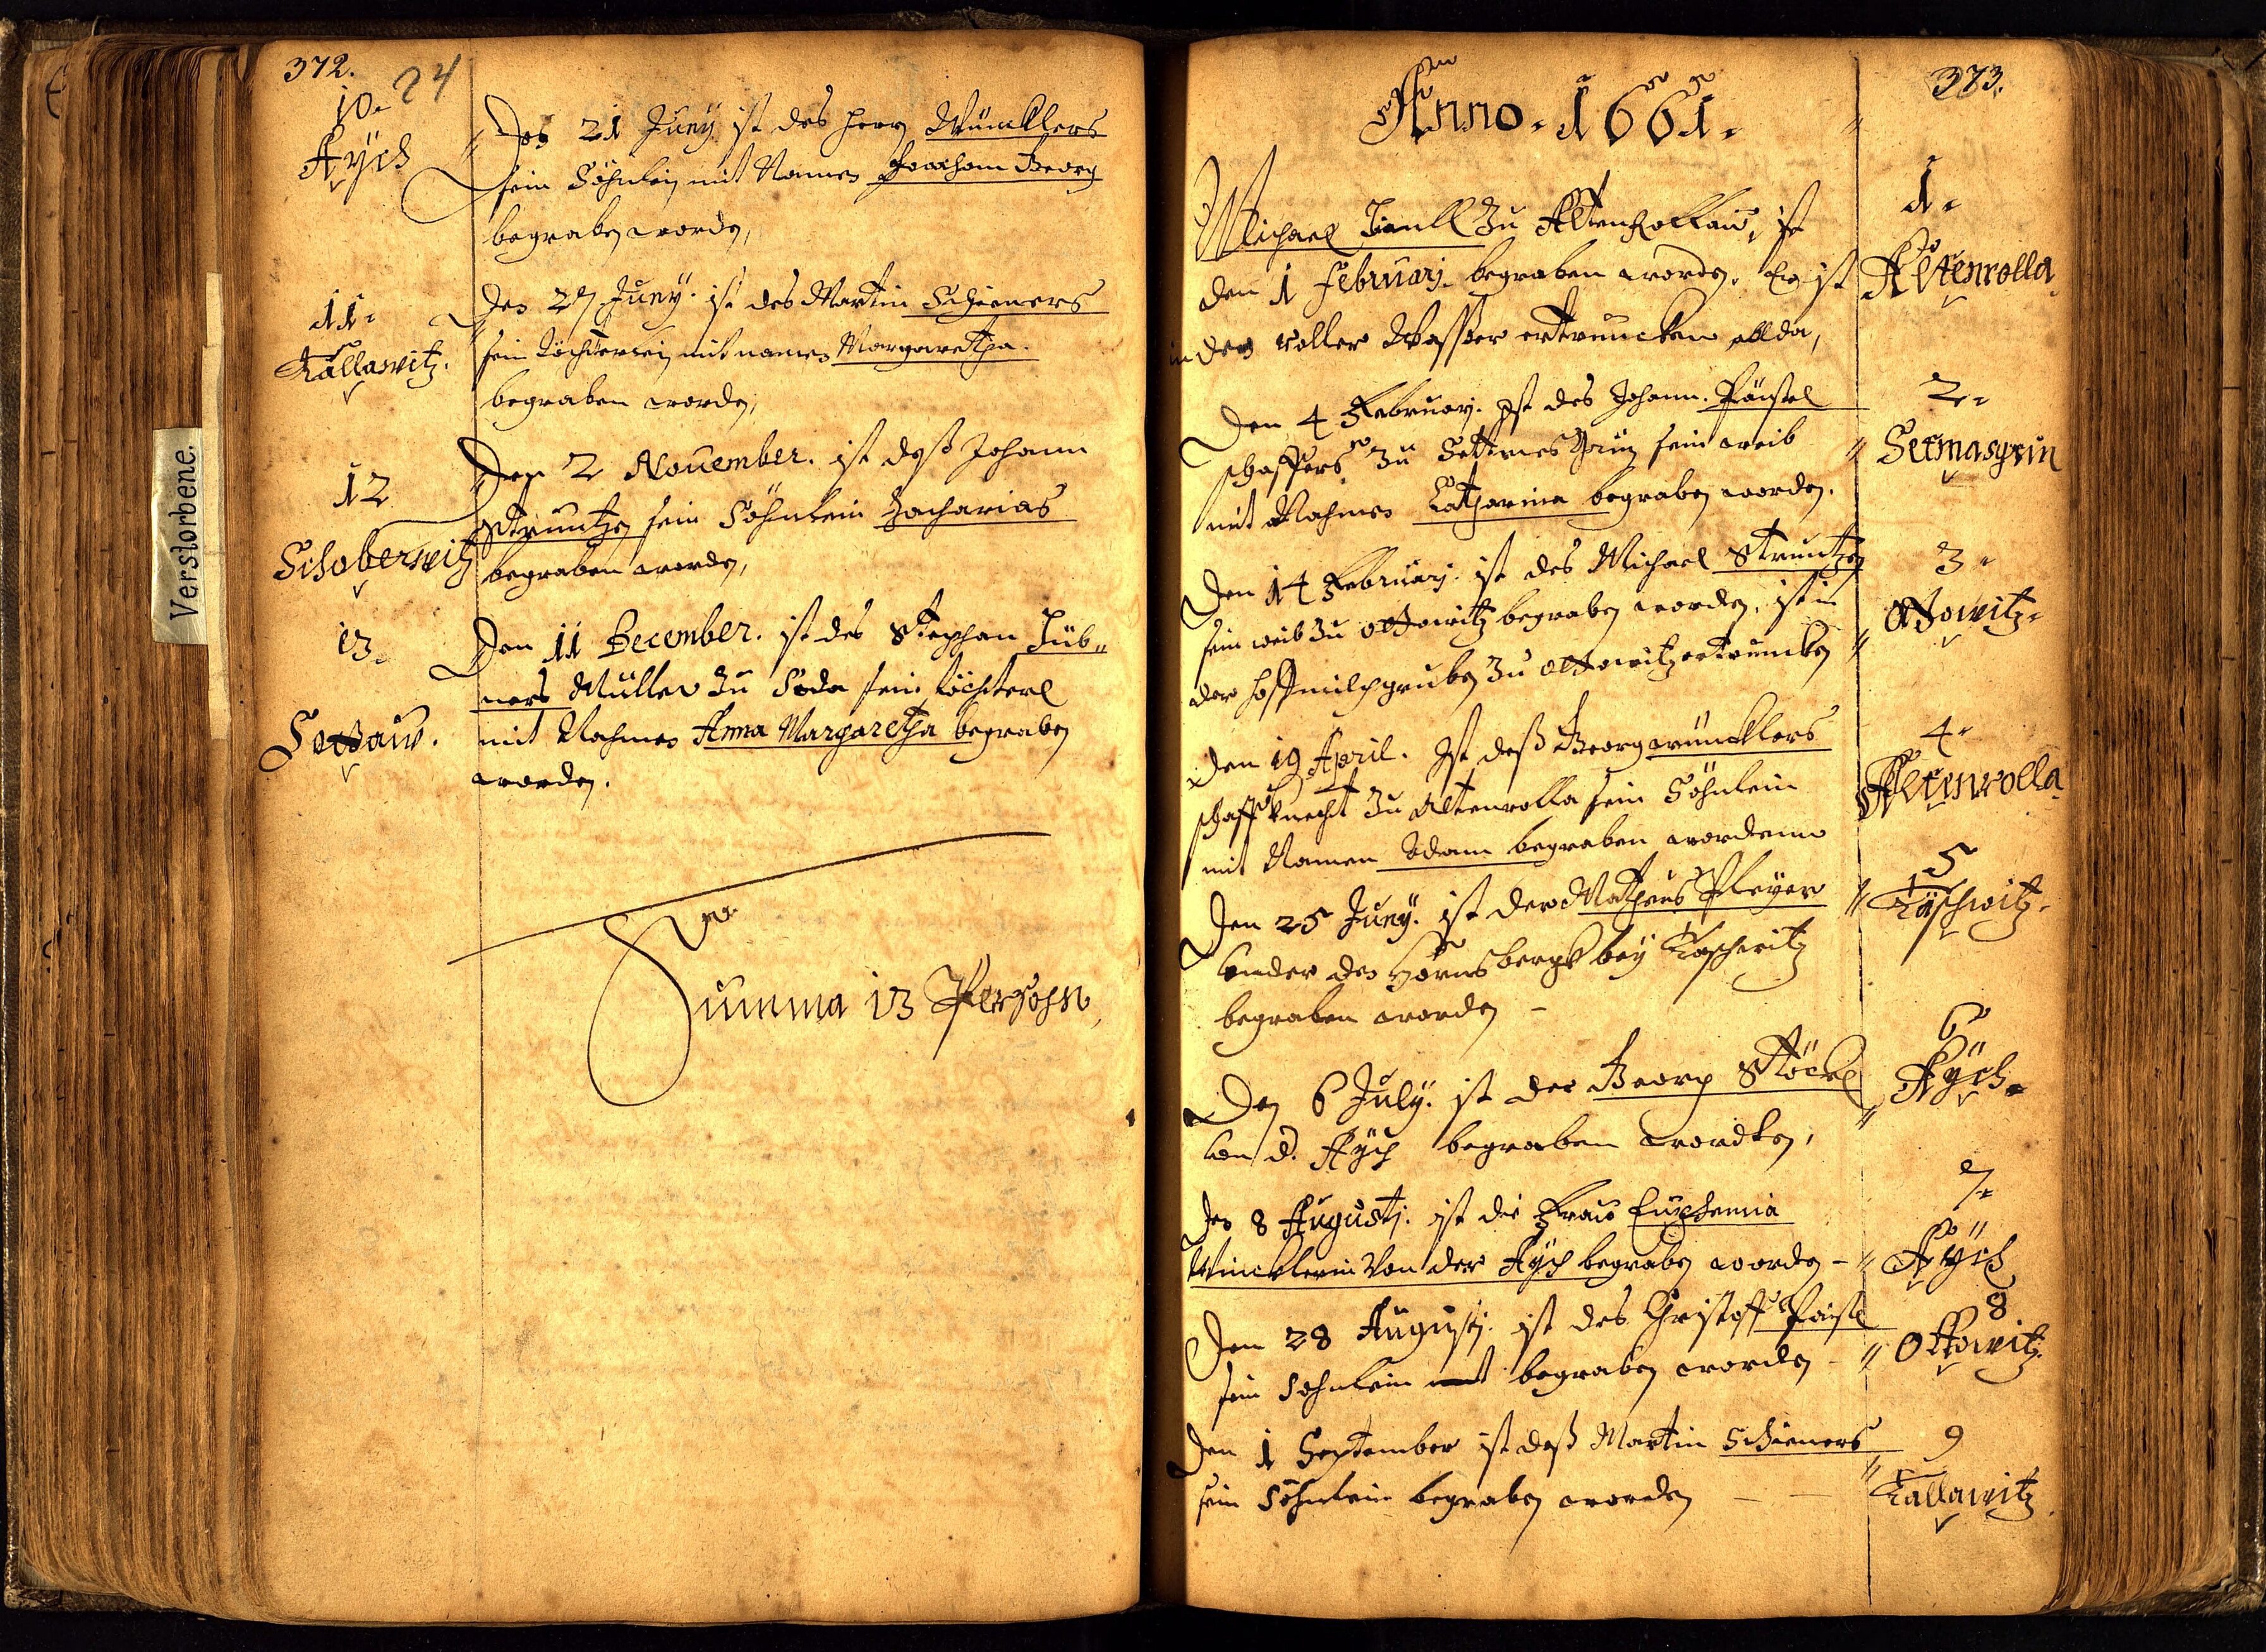 372.
24
10.
Aÿch
Den 21 Juny ist des Herrn Wüncklers
sein Söhnlein mit Namen Joachom Georg
begraben worden,
11.
Kallawitz.
Den 27 Juny. ist des Martin Schieners
sein Töchterlein mit namen Margaretha.
begraben worden,
12
Schoberwitz
Den 2 Nouember. ist deß Johann
Struntzen sein Söhnlein Zacharias
begraben worden,
13.
Sottaw.
Den 11 December. ist des Stephan Füb„
ners Müller zu Soda sein töchterl
mit Nahmen Anna Margaretha begraben
worden.
Summa 13 Persohn,
Verstorbene.
373.
Anno. 1661.
Michael zu Altenrollaw, ist
den 1 Februarj. begraben worden. Er ist
in der roller Wasser ertruncken allda,
1.
Altenrolla
Den 4 Februarj. Ist des Johann. Päistel
schaffers zu Settmesgrün sein weib
mit Nahmen Catharina begraben worden.
2.
Setmasgrün
Den 14 Februarj. ist des Michael Struntzen
sein weib zu ottowitz begraben worden, ist in
der hoffmilchgruben zu ottowitz ertruncken
3.
Ottowitz.
Den 19 April. Ist deß Georg wüncklers
schaffknecht zu Altenrolla sein Söhnlein
mit Namen Adam begraben wordenn
4.
Altenrolla
Den 25 Juny. ist der Matheus Pleyer
under den Hornsbergk bey Taschwitz
begraben worden –
5
Taschwitz.
Den 6 July. ist der Georg Stöckl
von d. Aÿch begraben wordten,
6
Aÿch.
Den 8 Augusti. ist die Fraw Euphemia
Wincklerin von der Aÿch begraben worden –
7.
Aÿch
Den 28 Augusti. ist des Christoff Paistl
sein Söhnlein mit begraben worden –
8
Ottowitz.
Den 1 September ist deß Martin Schieners
sein Söhnlein begraben worden – –
9
Kallawitz.